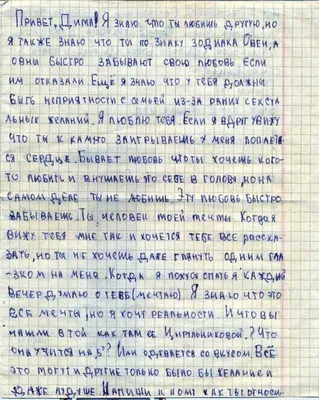 Привет, Дима! Я знаю что ты любишь другую, но
я также знаю что ты по знаку зодиака Овен, а
овны быстро забывают свою любовь если
им отказали Ещё я знаю что у тебя должны
быть неприятности с семьёй из-за раних сексуа
льных желаний. Я люблю тебя Если я вдруг увижу
что ты к камно заигрываешь у меня лопаетс
ся сердце. Бывает любовь что ты хочешь кого-
то любить и внушаешь это себе в голову, но на
самом деле ты не любишь. Эту любовь быстро
забываешь. Ты человек моей мечты Когда я
вижу тебя мне так и хочется тебе всё расска-
зать, но ты не хочешь даже глянуть одним гла
зком на меня. Когда я ложусь спать я каждый
вечер думаю о тебе (мечтаю) Я знаю что это
всё мечты, но я хочу реальности И что вы
нашли в той как там её Цирульниковой.? Что
она учится на 5? Или одевается со вкусом. Всё
это могут и другие только было бы желание и
даже лучше Напиши к кому как ты относи-